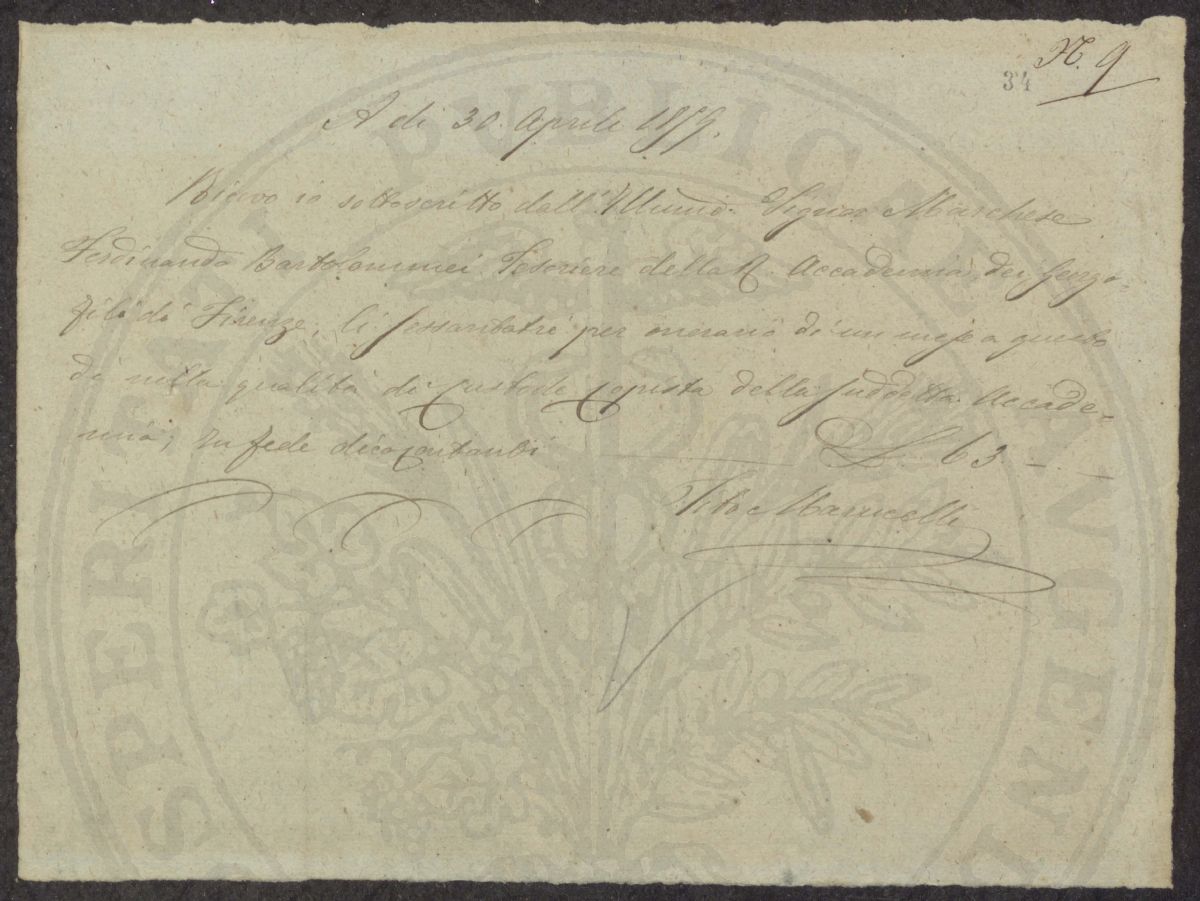 N. 9
34
A di 30. Aprile 1859.
Ricevo io sottoscritto dall' Illumo. Signor Marchese
Ferdinando Bartolommei Tesoriere della R. Accademia dei Georgo-
fili di Firenze, li sessantatrè per onorario di un mese a questo
dì nella qualità di Custode Copista della suddetta Accade-
mia, in fede dico contanti L. 63 —
Tito Marrucelli
PROSPERITATI PUBLICAE AUGENDAE